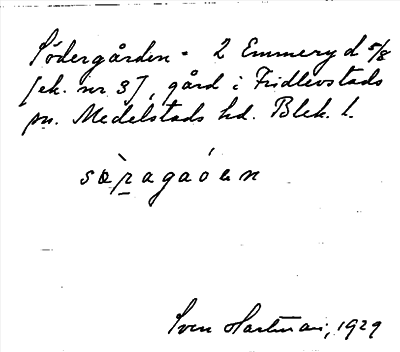 Södergården - 2 Emmeryd 5/8
[ek. nr 3], gård i Fridlevstads
sn. Medelstads hd. Blek. l.
sœ̀ragaóen
Sven Hartman, 1929